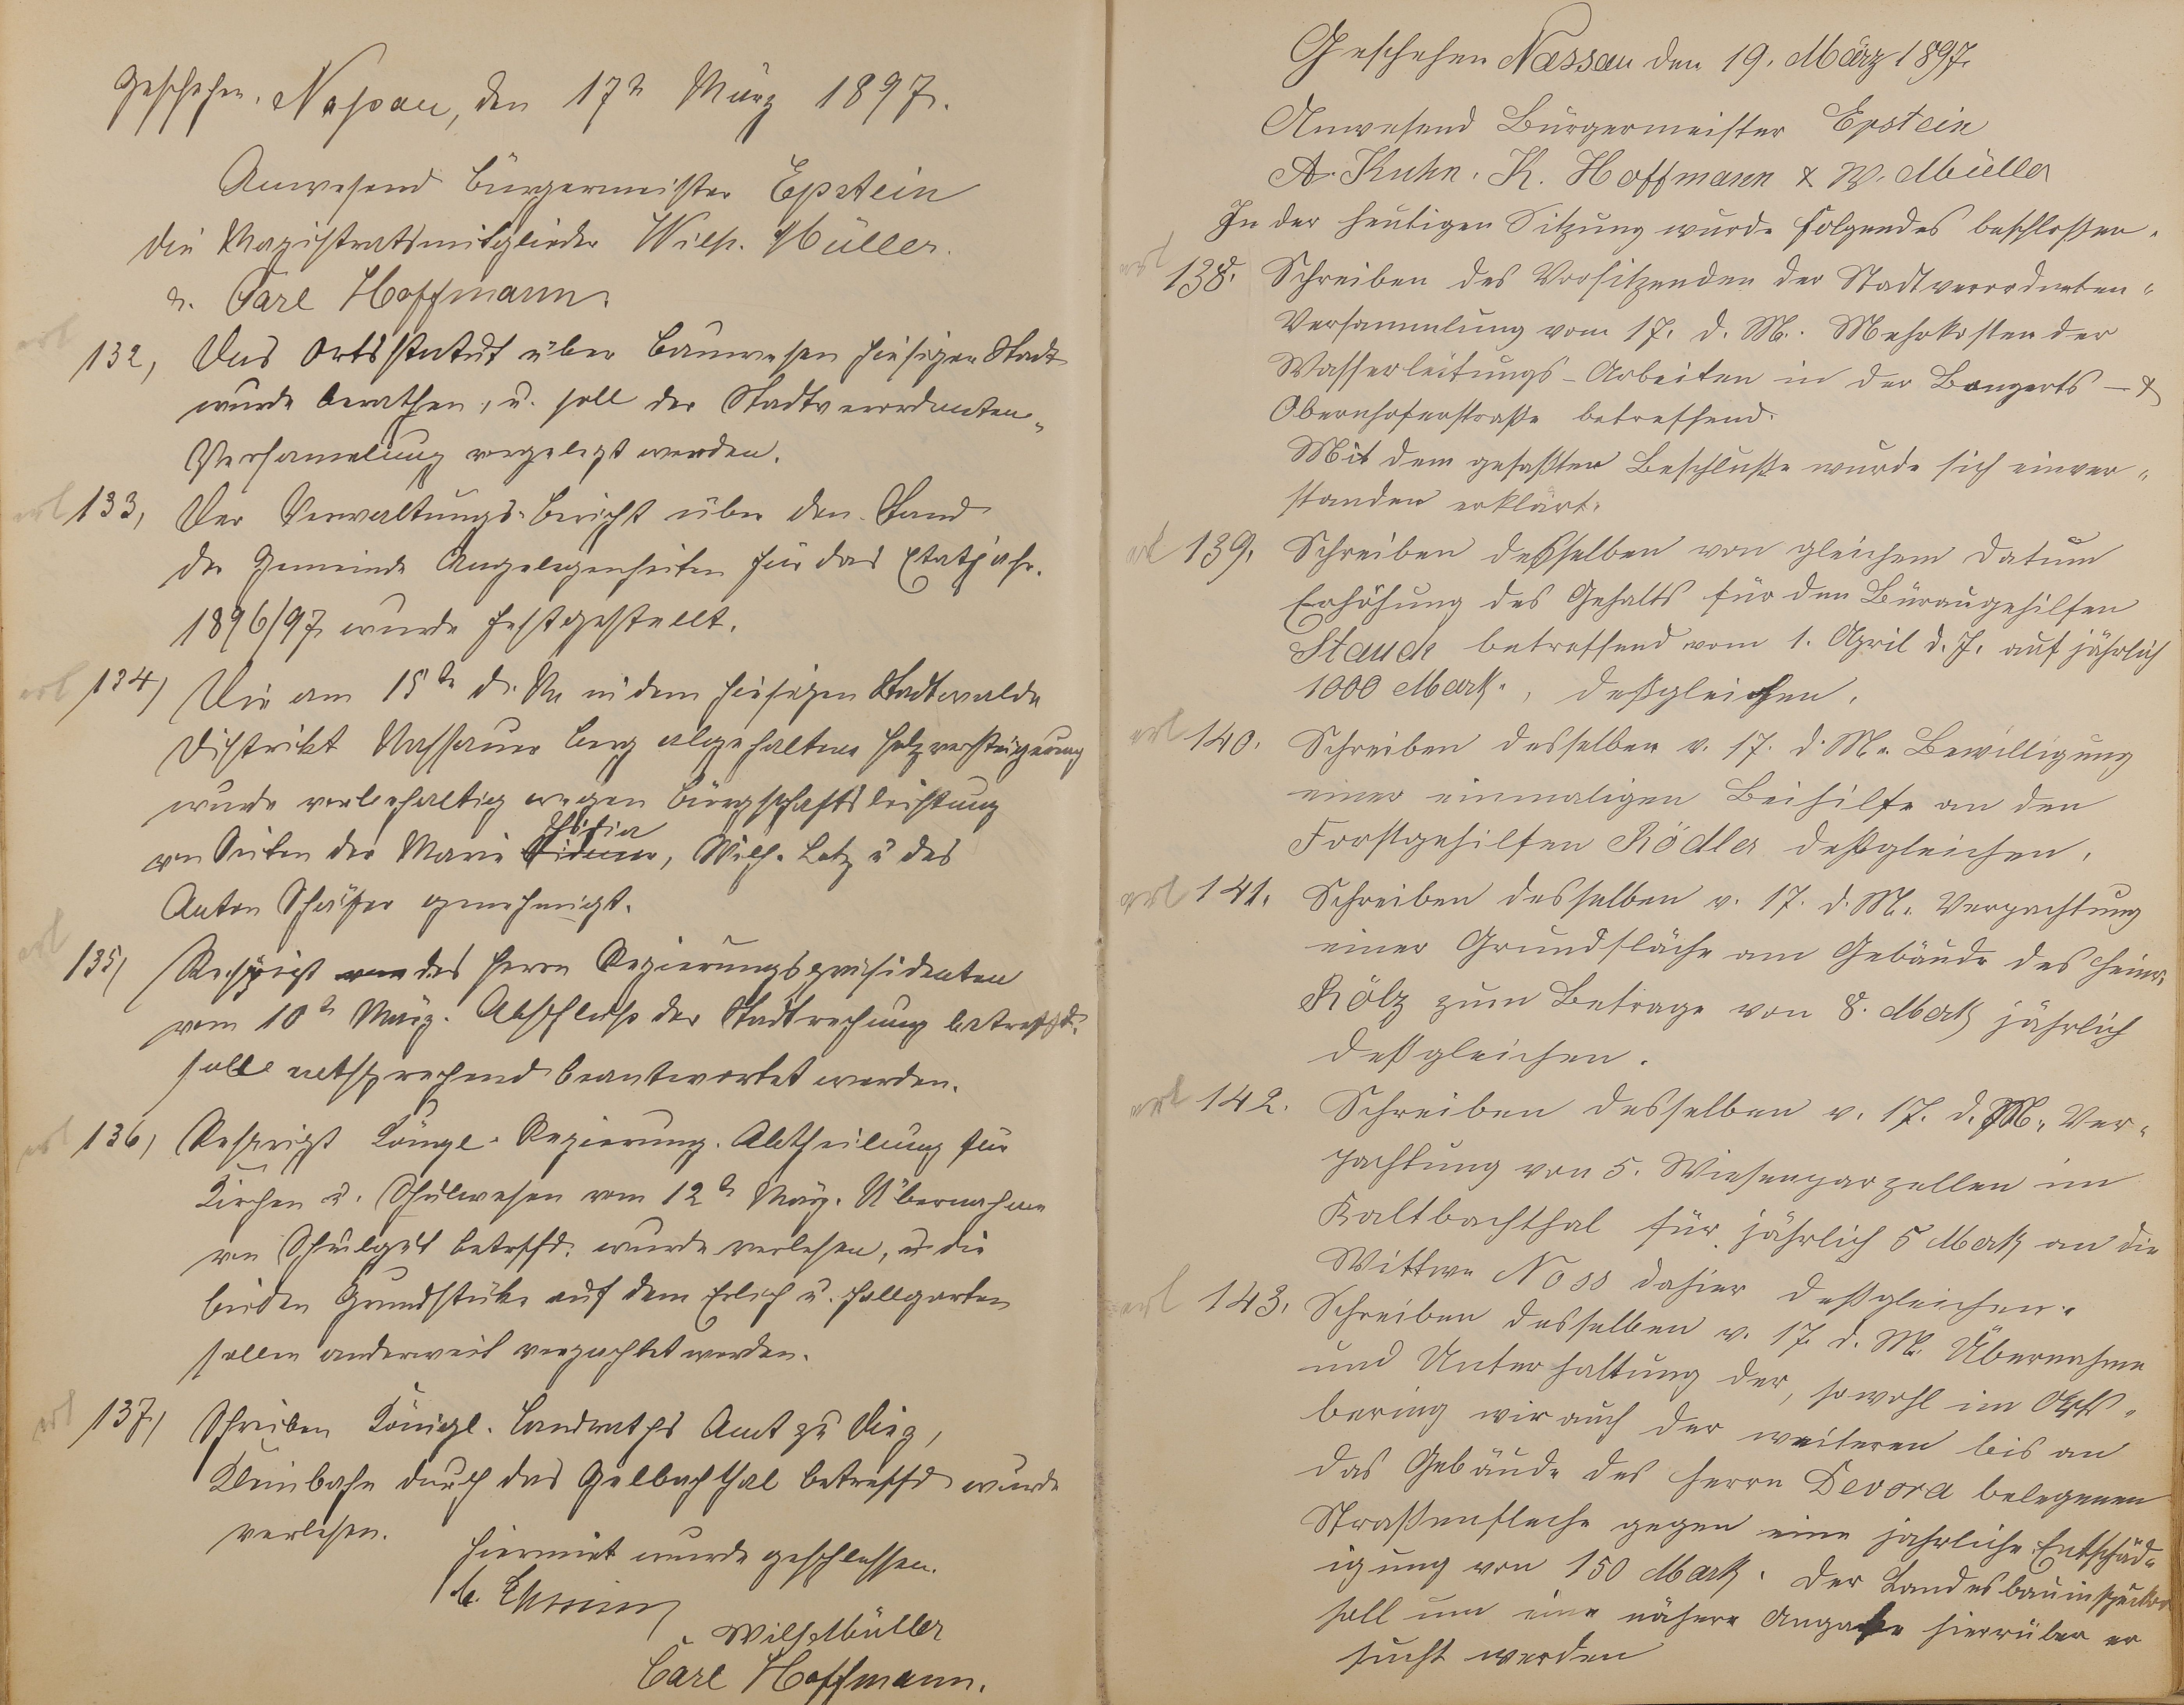 Geschehen, Nassau, den 17n März 1897.
Anwesend Bürgermeister Epstein
die Magistratsmitglieder Wilh. Müller.
u. Carl Hoffmann.
erl
132, Das Ortsstatut über Bauwesen hiesiger Stadt
wurde berathen, u. soll der Stadtverordneten-
Versamelung vorgelegt werden.
erl 133, Der Verwaltungs-Bericht über den Stand
der Gemeinde Angelegenheiten für das Etatjahr
1896/97 wurde festgestellt.
erl 134, Die am 15tn d. M. in dem hiesigen Stadtwalde
Distrikt Nassauer Berg abgehaltene Holzversteigerung
wurde vorbehaltig wegen Bürgschaftsleistung
von Seiten der Marie , Wilh. Lotz u des
Anton Schäfer genehmigt.
erl
135, Rescript des Herrn Regierungspräsidenten
vom 10n März. Abschluss der Stadtrechnung betreffd.
solle entsprechend beantwortet werden.
erl 136, Rescript Köngl. Regierung. Abtheilung für
Kirchen u. Schulwesen vom 12n März. Übernahme
von Schulgut betrffd. wurde verlesen, u die
beiden Grundstüke auf dem Erlich u. Hallgarten
sollen anderweit verpachtet werden.
erl 137, Schreiben Königl. Landraths Amt zu Diez,
Kleinbahn durch das Gelbachthal betreffd wurde
verlesen.
Hiermit wurde geschlossen.
Wilh. Müller
Carl Hoffmann.
Geschehen Nassau den 19. März 1897.
Anwesend Bürgermeister Epstein
A. Kuhn. K. Hoffmann & W. Müller
In der heutigen Sitzung wurde folgendes beschloßen.
erl 138. Schreiben des Vorsitzenden der Stadtverordneten-
Versammlung vom 17. d. M. Mehrkosten der
Wasserleitungs-Arbeiten in der Bongerts- &
Obernhoferstraße betreffend.
Mit dem gefaßten Beschluße wurde sich einver-
standen erklärt.
erl 139. Schreiben deßselben von gleichem Datum
Erhöhung des Gehalts für den Büraugehilfen
Stauch betreffend vom 1. April d. J. auf jährlich
1000 Mark., deßgleichen.
erl 140. Schreiben desselben v. 17. d. M. Bewilligung
einer einmaligen Beihilfe an den
Forstgehilfen Rödler deßgleichen.
erl 141. Schreiben desselben v. 17. d. M. Verpachtung
einer Grundfläche am Gebäude des Heinr.
Rölz zum Betrage von 8. Mark jährlich
deßgleichen.
erl 142. Schreiben desselben v. 17. d. M. Ver-
pachtung von 5. Wiesenparzellen im
Kaltbachthal für jährlich 5 Mark an die
Wittwe Noss dahier deßgleichen.
erl 143. Schreiben desselben v. 17. d. M. Übernahme
und Unterhaltung der, sowohl im Orts-
bering wie auch der weiteren bis an
das Gebäude des Herrn Devora belegenen
Straßenfleche gegen eine jahrliche Entschäd-
igung von 150 Mark. Der Landesbauinspektor
soll um eine nähere Angabe hierrüber er
sucht werden